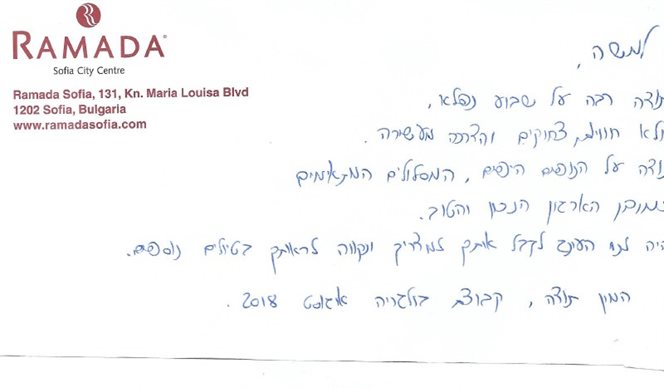 RAMADA®
Sofia City Centre
Ramada Sofia, 131, Kn. Maria Louisa Blvd
1202 Sofia, Bulgaria
www.ramadasofia.com
למשה,
תודה רבה על שבוע נפלא,
מלא חוויות, צחוקים והדרכה מעשירה.
תודה על הנופים היפים, המסלולים המתאימים
וכמובן הארגון הנכון והטוב.
היה לנו העונג לקבל אותך למדריך ונקווה לראותך בטיולים נוספים.
המון תודה, קבוצת בולגריה אוגוסט 2018.